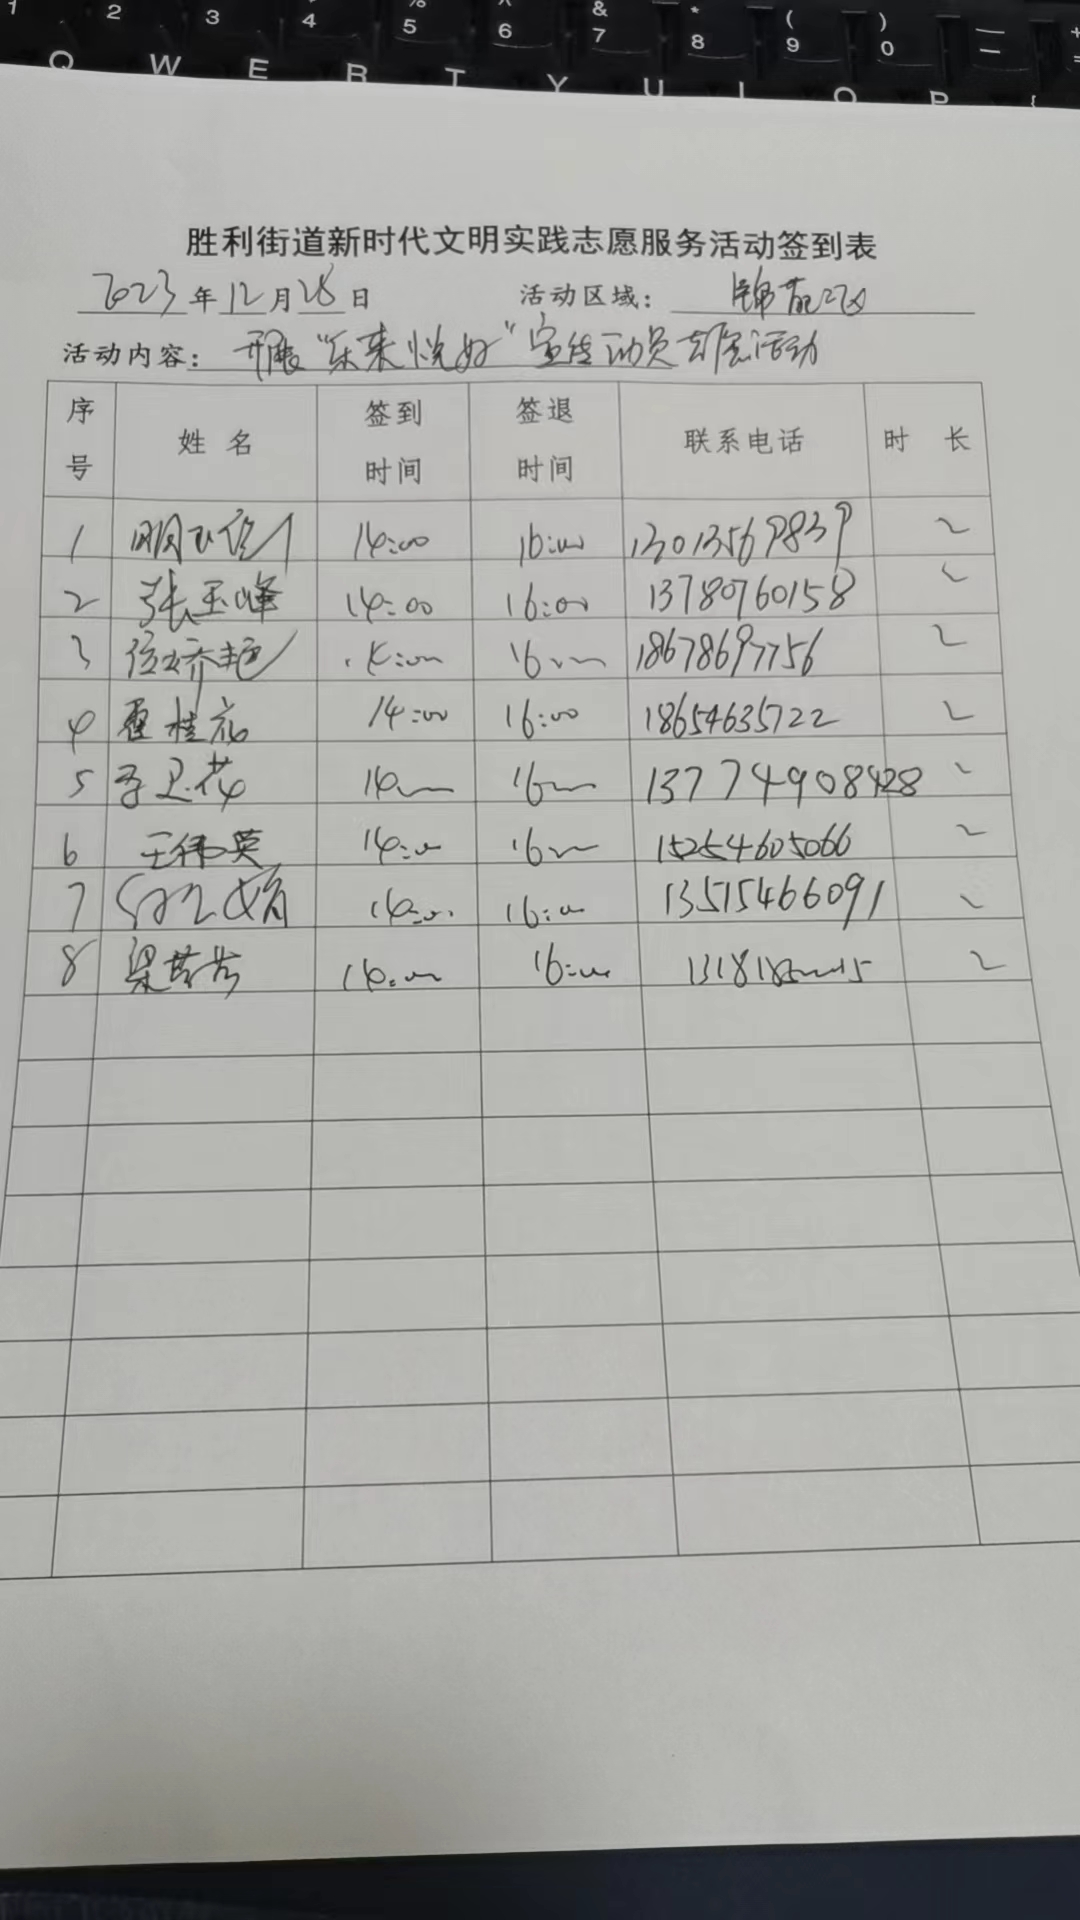 1 2 3 4 5 6 7 8 9 0
Q W E R T Y U I O P
胜利街道新时代文明实践志愿服务活动签到表
2023年12月28日 活动区域：锦苑二区
活动内容：开展“东来悦好”宣传动员志愿活动
序号 姓名 签到时间 签退时间 联系电话 时长
1 14:00 16:00 13013569839 2
2 张玉峰 14:00 16:00 13780760158 2
3 16:00 18678697756 2
4 霍桂花 14:00 16:00 18654635722 2
5 李卫花 14:00 16:00 2
6 王伟英 14:00 16:00 15254605066 2
7 14:00 16:00 13515466091 2
8 梁芸芸 14:00 16:00 2